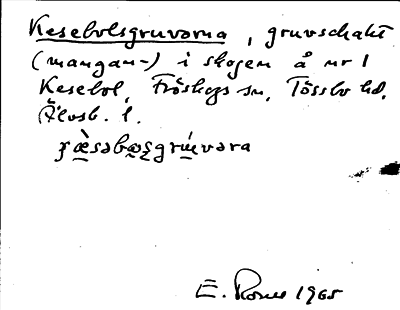 Kesebolsgruvorna, gruvschakt
(mangan-) i skogen å nr 1
Kesebol, Fröskogs sn, Tössbo hd,
Älvsb. l.
E. 1965